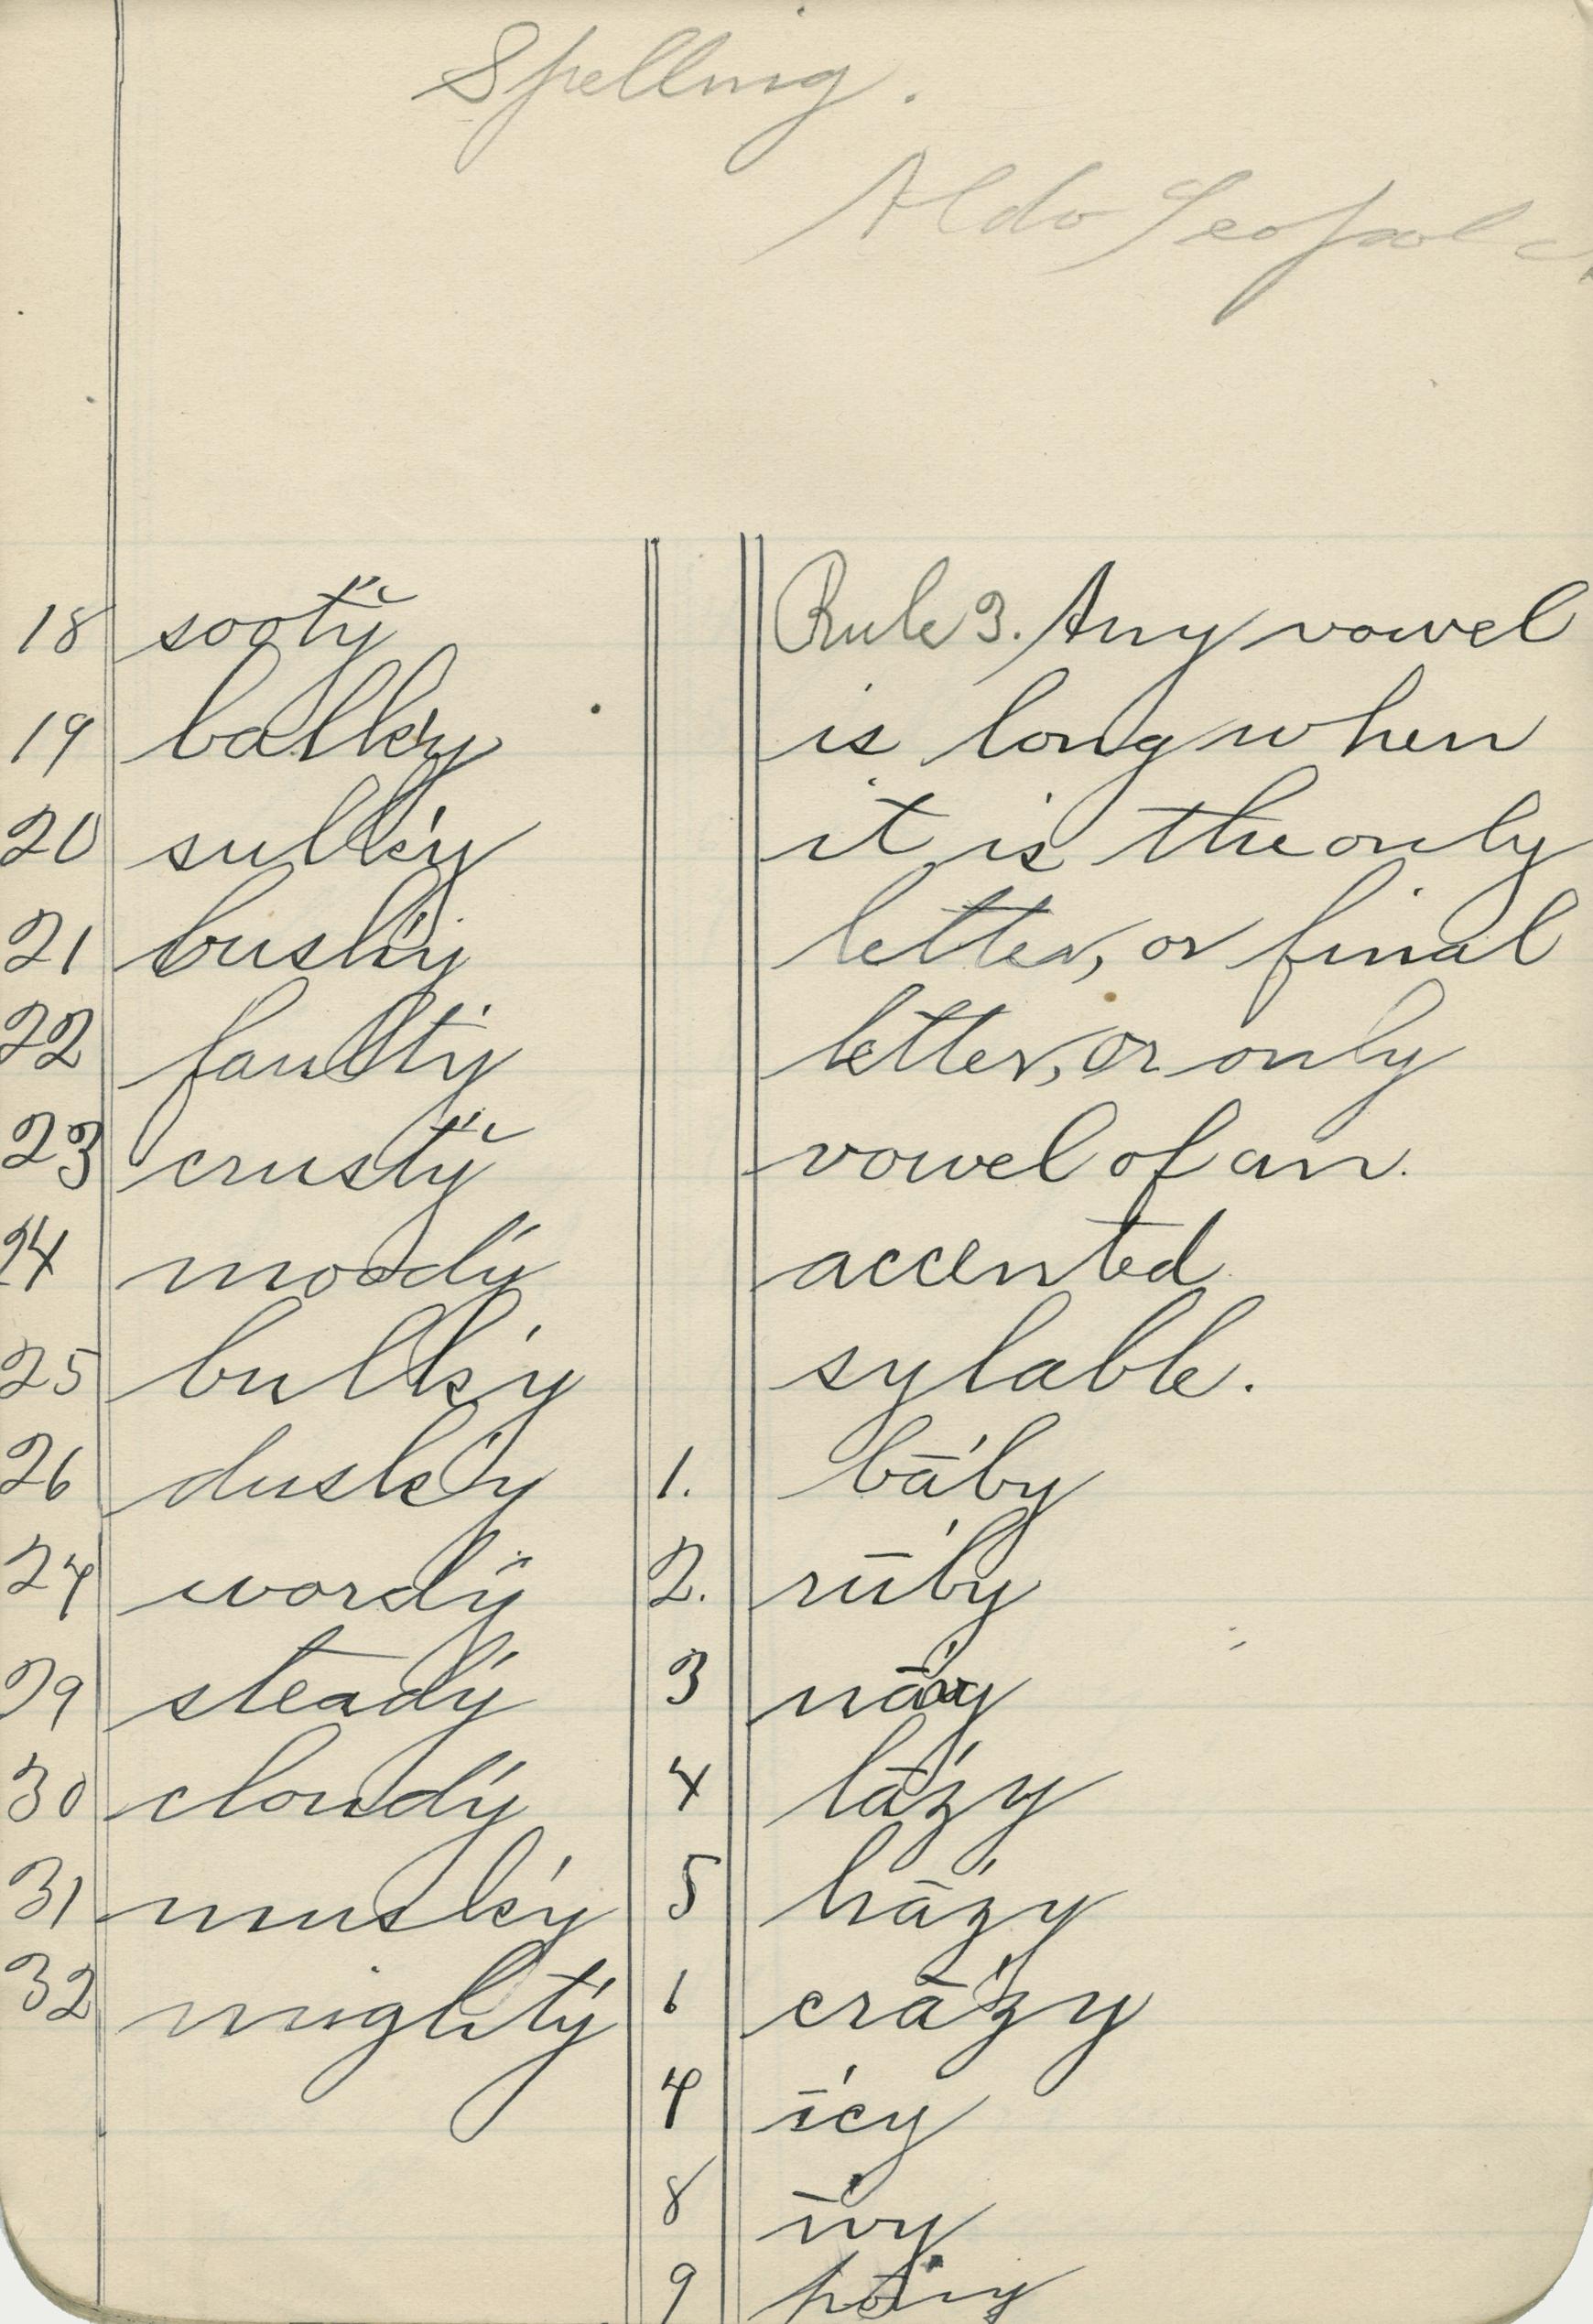 Spelling.
Aldo Leopold
18 sooty̆
19 balky
20 sulky
21 bushy
22 faulty
23 crusty̆
24 moody
25 bulky
26 dusky
27 wordy
29 steady
30 cloudy
31 musky
32 mighty
Rule 3. Any vowel
is long when
it is the only
letter, or final
letter, or only
vowel of an
accented
sylable.
1. bā'by
2. rū'by
3 nā'vy
4 lā'zy
5 hā'zy
6 crā'zy
7 ī'cy
8 ī'vy
9 pō'ny